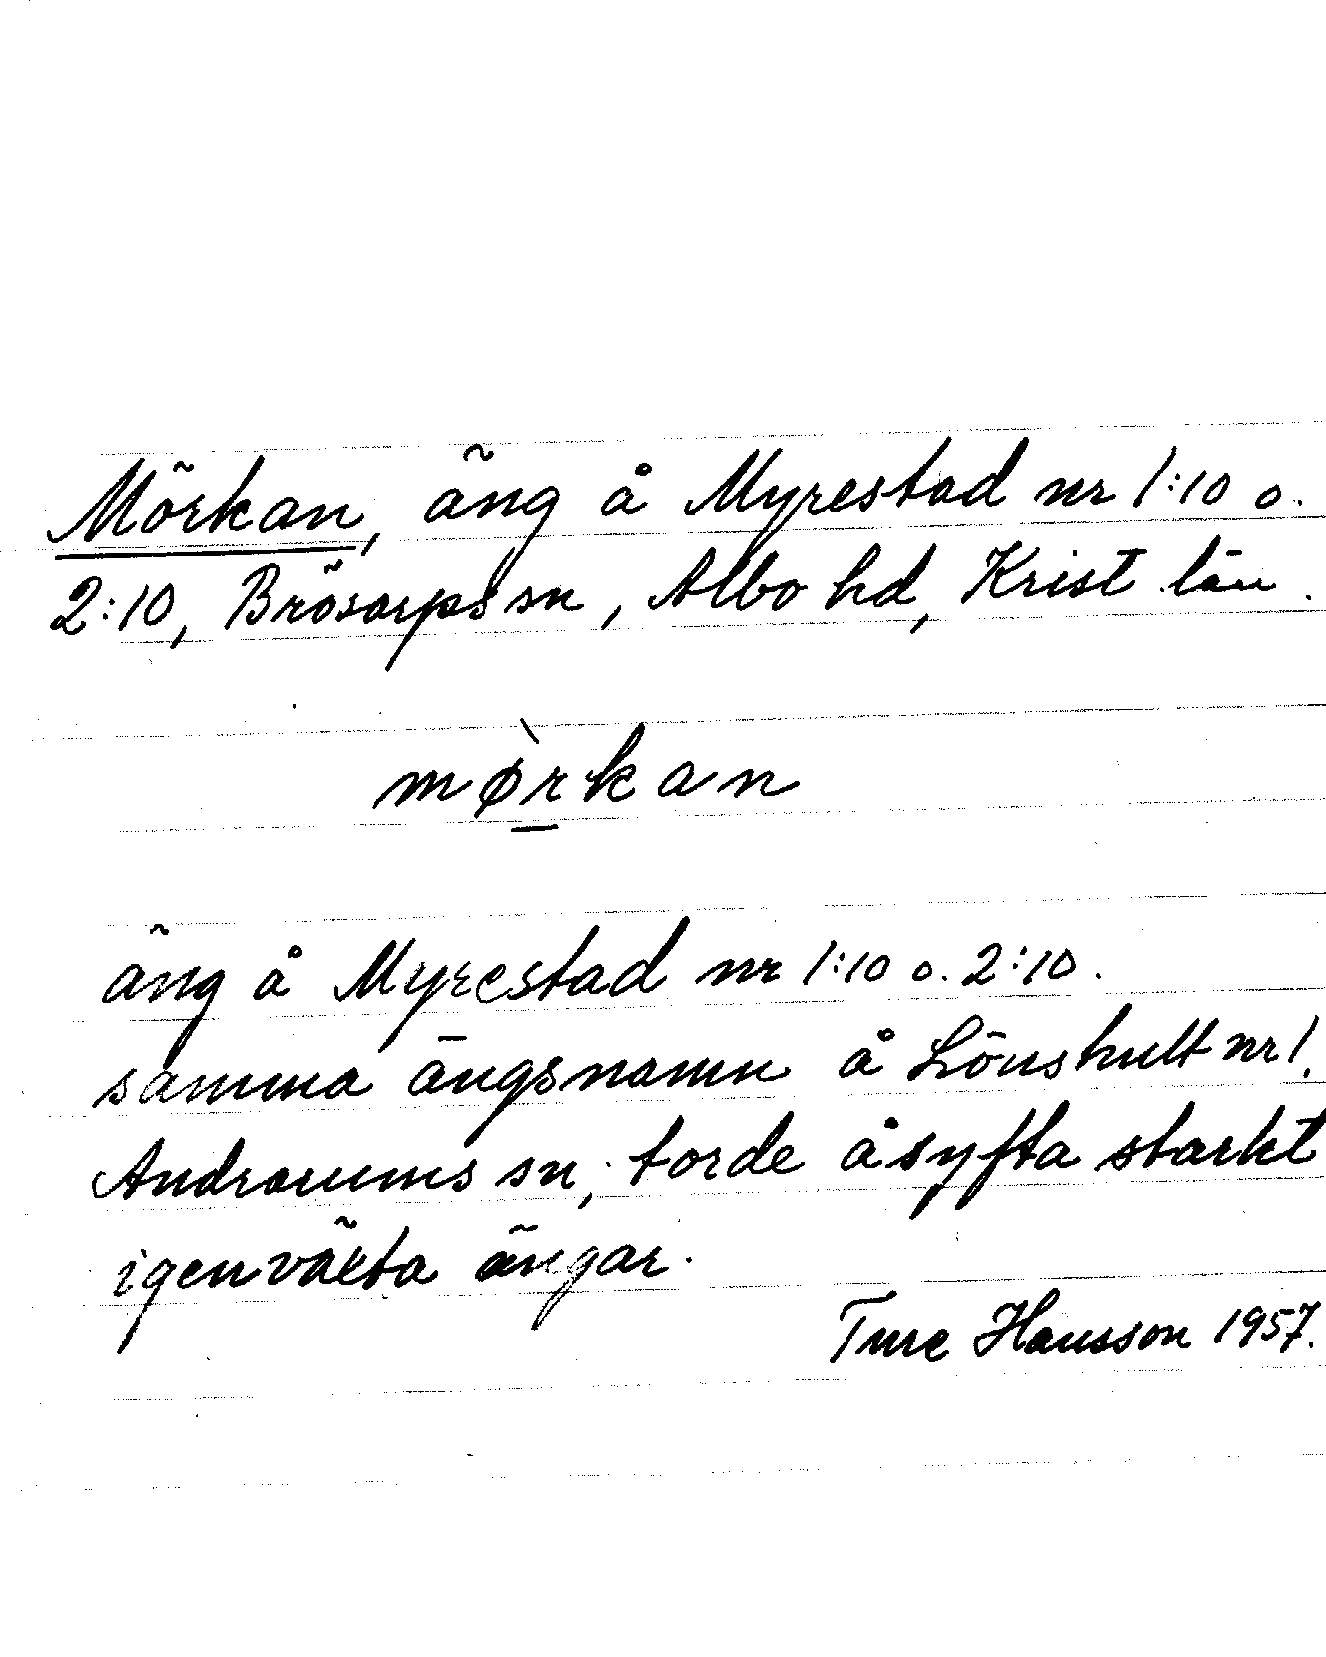 Mörkan, äng å Myrestad nr 1:10 o.
2:10, Brösarps sn, Albo hd, Krist län.
mø̀rkan
äng å Myrestad nr 1:10 o. 2:10.
samma ängsnamn å Lönshult nr 1,
Andrarums sn; torde åsyfta starkt
igenväxta ängar.
Ture Hansson 1957.